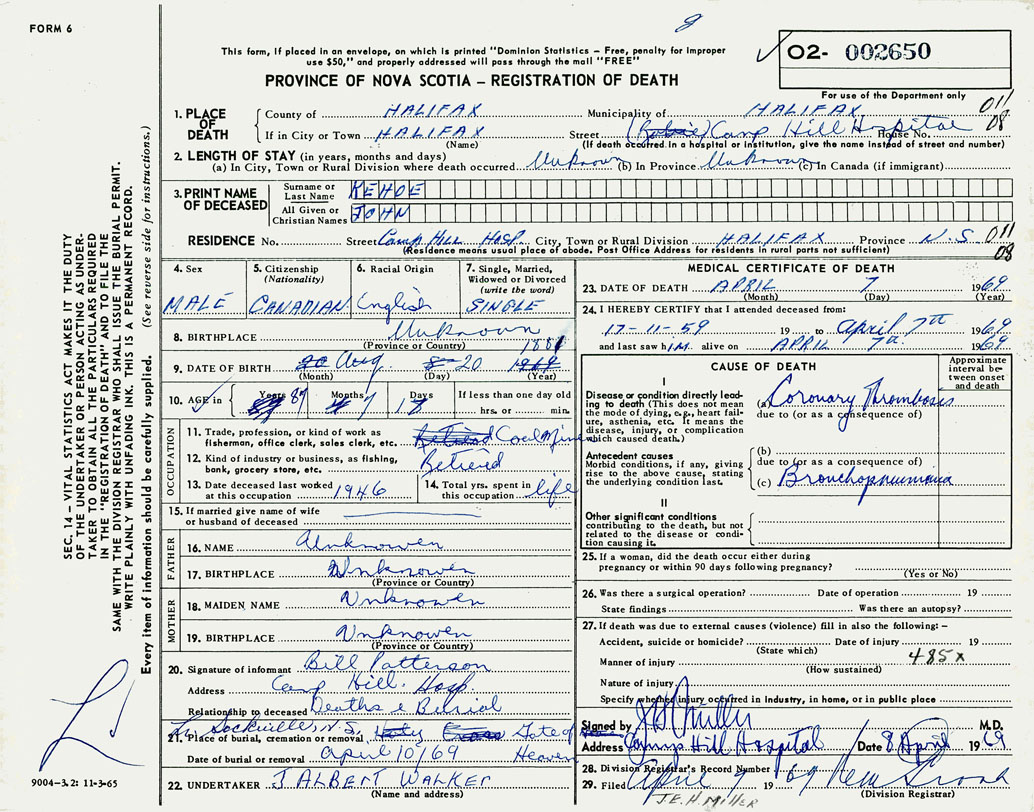 FORM 6
8
This form, if placed in an envelope, on which is printed "Dominion Statistics – Free, penalty for improper
use $50," and properly addressed will pass through the mail "FREE"
PROVINCE OF NOVA SCOTIA – REGISTRATION OF DEATH
02- 002650
For use of the Department only
011
08
1. PLACE OF DEATH
County of HALIFAX Municipality of HALIFAX
If in City or Town HALIFAX Street (Robie) Camp Hill Hospital House No.
(Name) (If death occurred in a hospital or institution, give the name instead of street and number)
2. LENGTH OF STAY (in years, months and days)
(a) In City, Town or Rural Division where death occurred Unknown (b) In Province Unknown (c) In Canada (if immigrant)
3. PRINT NAME OF DECEASED
Surname or Last Name KEHOE
All Given or Christian Names JOHN
RESIDENCE No. Street Camp Hill Hosp. City, Town or Rural Division HALIFAX Province N.S. 011
(Residence means usual place of abode. Post Office Address for residents in rural parts not sufficient) 08
4. Sex
MALE
5. Citizenship (Nationality)
CANADIAN
6. Racial Origin
English
7. Single, Married, Widowed or Divorced (write the word)
SINGLE
8. BIRTHPLACE Unknown
(Province or Country)
1881
9. DATE OF BIRTH 20 Aug 8 20 1969
(Month) (Day) (Year)
10. AGE in Years 87 Months 7 Days 18 If less than one day old
hrs. or min.
OCCUPATION
11. Trade, profession, or kind of work as fisherman, office clerk, sales clerk, etc. Retired Coal Miner
12. Kind of industry or business, as fishing, bank, grocery store, etc. Retired
13. Date deceased last worked at this occupation 1946
14. Total yrs. spent in this occupation life
15. If married give name of wife or husband of deceased
FATHER
16. NAME Unknowen
17. BIRTHPLACE Unknowen
(Province or Country)
MOTHER
18. MAIDEN NAME Unknowen
19. BIRTHPLACE Unknowen
(Province or Country)
20. Signature of informant Bill Patterson
Address Camp Hill. Hosp.
Relationship to deceased Deaths & Burial
Sackville, N.S.
21. Place of burial, cremation or removal Holy Cross Gate of Heaven
Date of burial or removal April 10/69
22. UNDERTAKER J. ALBERT WALKER
(Name and address)
MEDICAL CERTIFICATE OF DEATH
23. DATE OF DEATH APRIL 7 1969
(Month) (Day) (Year)
24. I HEREBY CERTIFY that I attended deceased from:
17-11-59 19 to April 7th 1969
and last saw him alive on APRIL 7th 1969
CAUSE OF DEATH
Approximate interval between onset and death
I
Disease or condition directly leading to death (This does not mean the mode of dying, e.g., heart failure, asthenia, etc. It means the disease, injury, or complication which caused death.)
(a) Coronary Thrombosis
due to (or as a consequence of)
Antecedent causes
Morbid conditions, if any, giving rise to the above cause, stating the underlying condition last.
(b)
due to (or as a consequence of)
(c) Bronchopneumonia
II
Other significant conditions
contributing to the death, but not related to the disease or condition causing it.
25. If a woman, did the death occur either during pregnancy or within 90 days following pregnancy?
(Yes or No)
26. Was there a surgical operation? Date of operation 19
State findings Was there an autopsy?
27. If death was due to external causes (violence) fill in also the following:-
Accident, suicide or homicide? Date of injury 19
(State which)
Manner of injury 485X
(How sustained)
Nature of injury
Specify whether injury occurred in industry, in home, or in public place
Signed by J.E.H. Miller M.D.
Address Camp Hill Hospital Date 8 April 1969
28. Division Registrar's Record Number
29. Filed April 9 1969
(Division Registrar)
J.E.H. MILLER
SEC. 14 – VITAL STATISTICS ACT MAKES IT THE DUTY
OF THE UNDERTAKER OR PERSON ACTING AS UNDER-
TAKER TO OBTAIN ALL THE PARTICULARS REQUIRED
IN THE "REGISTRATION OF DEATH" AND TO FILE THE
SAME WITH THE DIVISION REGISTRAR WHO SHALL ISSUE THE BURIAL PERMIT.
WRITE PLAINLY WITH UNFADING INK. THIS IS A PERMANENT RECORD.
Every item of information should be carefully supplied. (See reverse side for instructions.)
9004-3.2: 11-3-65